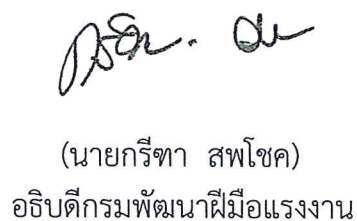 (นายกรีฑา สพโชค)
อธิบดีกรมพัฒนาฝีมือแรงงาน